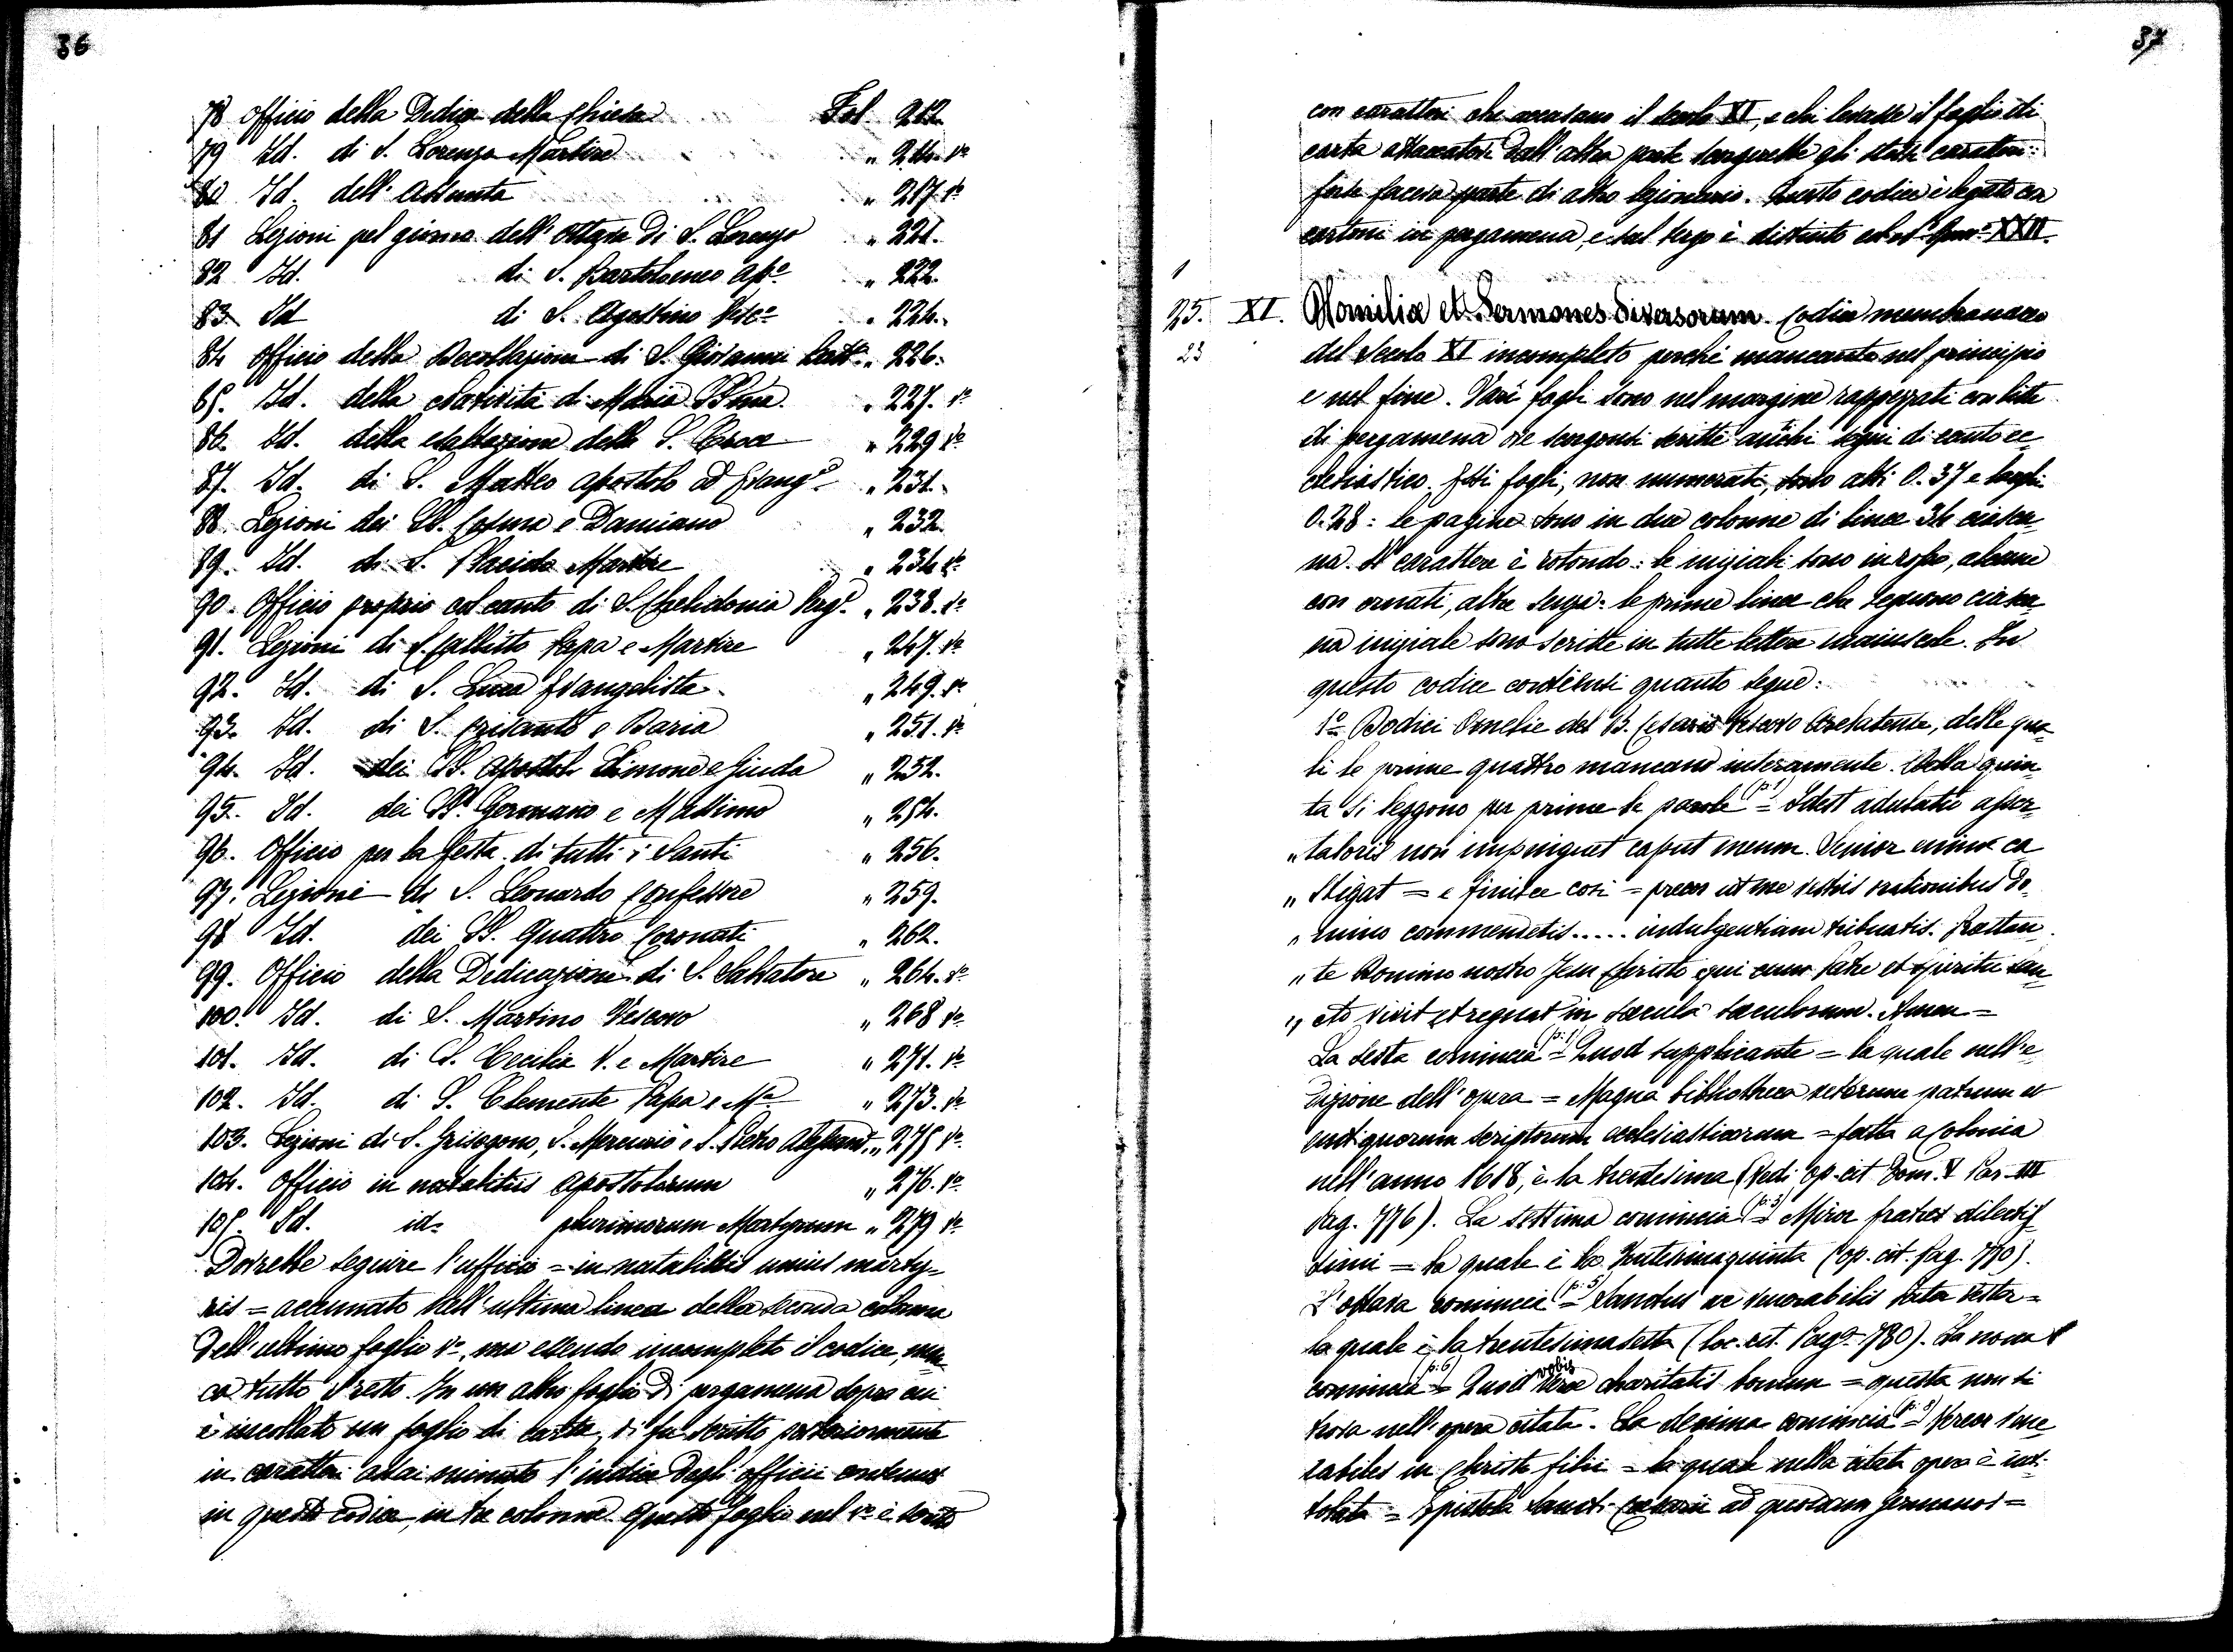 36
78 Officio della Dedica della Chiesa Fol. 212.
79 Id. di S. Lorenzo Martire " 214. vo
80 Id. dell'Assunta " 217. vo
81 Lezioni pel giorno dell'ottava di S. Lorenzo " 221.
82 Id. di S. Bartolomeo Apo. " 222.
83. Id di S. Agostino Vesco " 224.
84 Officio della Decollazione di S. Giovanni Batta. " 226.
85. Id. della Natività di Maria SSma. " 227. vo
86. Id. della esaltazione della S. Croce " 229 vo
87. Id. di S. Matteo Apostolo ed Evango. " 231.
88. Lezioni dei SS. Cosma e Damiano " 232.
89. Id. di S. Placido Martire " 234 vo
90. Officio proprio col canto di S. Chelidonia Verge. " 238. vo
91. Lezioni di S. Callisto Papa e Martire " 247. vo
92. Id. di S. Luca Evangelista " 249. vo
93. Id. di S. Crisanto e Daria " 251. vo
94. Id. dei SS. Apostoli Simone e Giuda " 252.
95. Id. dei SS. Germano e Massimo " 254.
96. Officio per la festa di tutti i Santi " 256.
97. Lezioni di S. Leonardo Confessore " 259.
98 Id. dei SS. Quattro Coronati " 262.
99. Officio della Dedicazione di S. Salvatore " 264. vo
100. Id. di S. Martino Vescovo " 268 vo
101. Id. di S. Cecilia V. e Martire " 271. vo
102. Id. di S. Clemente Papa e Me " 273. vo
103. Lezioni di S. Grisogono, S. Mercurio e S. Pietro Alessand. " 275 vo
104. Officio in natalitiis Apostolorum " 276. vo
105. Id. id= plurimorum Martyrum " 279 vo
Dovrebbe seguire l'ufficio = in natalitiis unius marty=
ris = accennato nell'ultima linea della seconda colonna
dell'ultimo foglio vo, ma essendo incompleto il codice, man
ca tutto il resto. In un altro foglio di pergamena sopra cui
è incollato un foglio di carta, vi fu scritto posteriormente
in caratteri assai minuto l'indice degli officii contenuti
in questo codice, in tre colonne. Questo foglio nel vo è scritto
37
con caratteri che accusano il secolo XI, e chi levasse il foglio di
carta attaccatovi dall'altra parte scorgerebbe gli stessi caratteri:
forse faceva parte di altro lezionario. Questo codice è legato con
cartoni in pergamena, e sul tergo è distinto col no XXII.
1
25. XI. Homiliæ et Sermones diversorum. Codice membranaceo
23 del secolo XI incompleto perché mancante nel principio
e nel fine. Varî fogli sono nel margine rappezzati con liste
di pergamena ove scorgonsi scritti antichi segni di canto ec
clesiastico. Essi fogli, non numerati, sono alti 0.37 e larghi
0.28: le pagine sono in due colonne di linee 34 ciascu
na. Il carattere è rotondo: le iniziali sono in rosso, alcune
con ornati, altre senza: le prime linee che seguono ciascu
na iniziale sono scritte in tutte lettere maiuscole. In
questo codice contiensi quanto segue:
1o Dodici Omelie del B. Cesario Vescovo Arelatense, delle qua
li le prime quattro mancano interamente. Della quin
ta si leggono per prime le parole (p: 1) = Idest adulatio assen
" tatoris non impinguet caput meum. Senior enim ca
" stigat = e finisce così = precor ut me vestris orationibus Do
" mino commendetis..... indulgentiam tribuatis. Præstan
" te Domino nostro Jesu Christo qui cum Patre et Spiritu san
" cto vivit et regnat in sæcula sæculorum. Amen =
La sesta comincia (p: 1) = Quod supplicante = la quale nell'e
dizione dell'opera = Magna bibliotheca veterum patrum et
antiquorum scriptorum ecclesiasticorum = fatta a Colonia
nell'anno 1618, è la trentesima (Vedi op. cit. Tom. V Par. III
Pag. 776). La settima comincia (p: 3) = Miror fratres dilectis
simi = la quale è la trentesimaquinta (op. cit. Pag. 770).
L'ottava comincia (p: 5) = Sanctus ac venerabilis Pater vester =
la quale è la trentesimasesta (loc. cit. Paga 780). La nona
comincia (p: 6) = Quod vobis charitatis bonum = questa non si
trova nell'opera citata. La decima comincia (p: 8) = Vereor vene
rabiles in Christo filii = la quale nella citata opera è inti
tolata = Epistola Sancti Cæsarii ad quosdam Germanos =